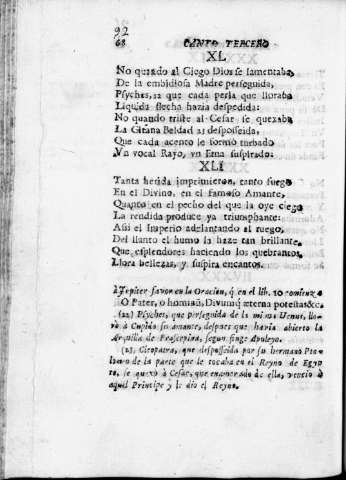 92
68 CANTO TERCERO
XL
No quando al Ciego Dios se lamentaba
De la embidiosa Madre perseguida,
Psyches, 22 que cada perla que lloraba
Liquida flecha hazia despedida:
No quando triste al Cesar se quexaba
La Gitana Beldad 23 desposseida,
Que cada acento le formó turbado
Vn vocal Rayo, vn suspirado:
XLI
Tanta herida imprimieron, tanto fuego
En el Divino, en el famoso Amante,
Quanto en el pecho del que la oye ciego
La rendida produce ya triumphante:
Assi el Imperio adelantando al ruego,
Del llanto el humo la haze tan brillante,
Que esplendores haciendo los quebrantos,
Llora bellezas, y suspira encantos.
à Jupiter favor en la Oracion, q̃ en el lib. 10 comienza
O Pater, o hominũ, Divumq́ æterna potestas &c.
(22) Psyches, que perseguida de la misma Venus, llo-
rò à Cupido su amante, despues que havia abierto la
Arquilla de Proserpina, segun finge Apuleyo.
(23) Cleopatra, que desposseida por su hermano Pto-
lomeo de la parte que le tocaba en el Reyno de Egyp
to, se quexò à Cesar, que enamorado de ella, venciò à
aquel Principe y le dio el Reyno.